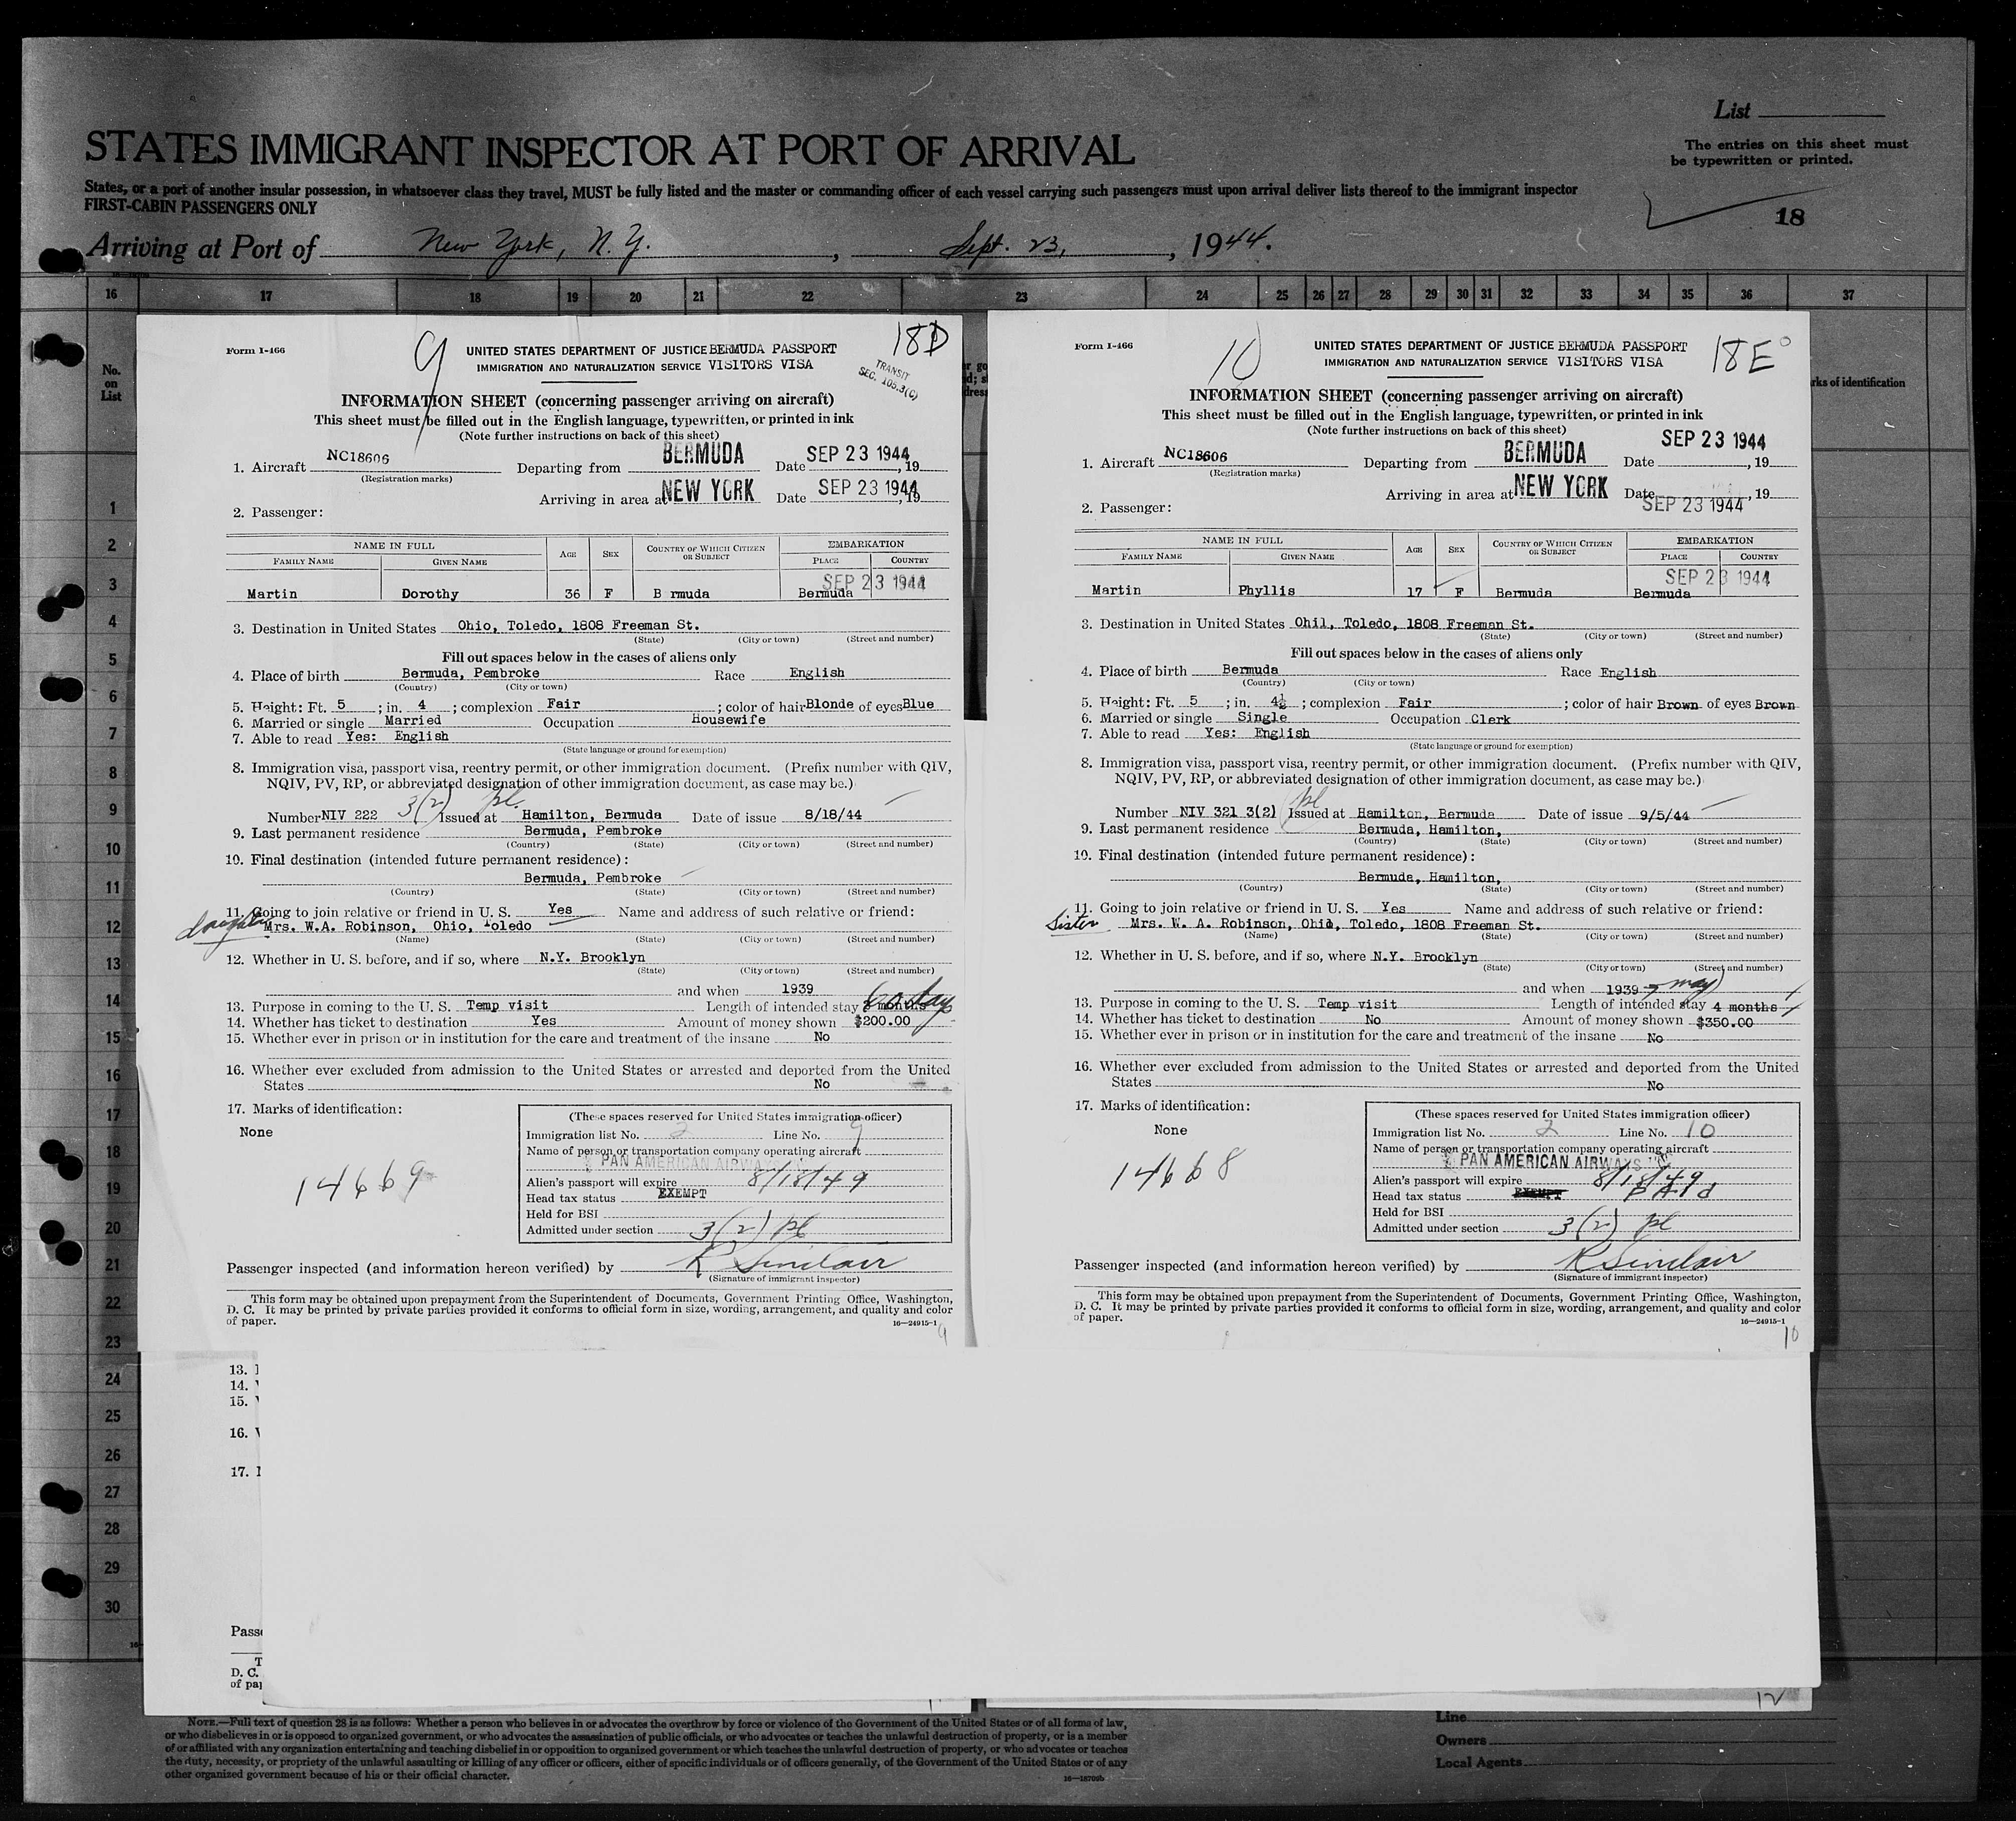 List
STATES IMMIGRANT INSPECTOR AT PORT OF ARRIVAL
The entries on this sheet must
be typewritten or printed.
States, or a port of another insular possession, in whatsoever class they travel, MUST be fully listed and the master or commanding officer of each vessel carrying such passengers must upon arrival deliver lists thereof to the immigrant inspector
FIRST-CABIN PASSENGERS ONLY
18
Arriving at Port of New York, N. Y. , Sept. 23, , 1944.
16 17 18 19 20 21 22 23 24 25 26 27 28 29 30 31 32 33 34 35 36 37
No.
on
List
rks of identification
1
2
3
4
5
6
7
8
9
10
11
12
13
14
15
16
17
18
19
20
21
22
23
24
25
26
27
28
29
30
9
18D
Form I-466
UNITED STATES DEPARTMENT OF JUSTICE BERMUDA PASSPORT
IMMIGRATION AND NATURALIZATION SERVICE VISITORS VISA
TRANSIT
SEC. 105.3(C)
INFORMATION SHEET (concerning passenger arriving on aircraft)
This sheet must be filled out in the English language, typewritten, or printed in ink
(Note further instructions on back of this sheet)
1. Aircraft NC18606 Departing from BERMUDA Date SEP 23 1944, 19
(Registration marks)
Arriving in area at NEW YORK Date SEP 23 1944, 19
2. Passenger:
NAME IN FULL AGE SEX COUNTRY OF WHICH CITIZEN OR SUBJECT EMBARKATION
FAMILY NAME GIVEN NAME PLACE COUNTRY
SEP 23 1944
Martin Dorothy 36 F B rmuda Bermuda
3. Destination in United States Ohio, Toledo, 1808 Freeman St.
(State) (City or town) (Street and number)
Fill out spaces below in the cases of aliens only
4. Place of birth Bermuda, Pembroke Race English
(Country) (City or town)
5. Height: Ft. 5 ; in. 4 ; complexion Fair ; color of hair Blonde of eyes Blue
6. Married or single Married Occupation Housewife
7. Able to read Yes: English
(State language or ground for exemption)
8. Immigration visa, passport visa, reentry permit, or other immigration document. (Prefix number with QIV,
NQIV, PV, RP, or abbreviated designation of other immigration document, as case may be.)
Number NIV 222 3(2) pl. Issued at Hamilton, Bermuda Date of issue 8/18/44
9. Last permanent residence Bermuda, Pembroke
(Country) (State) (City or town) (Street and number)
10. Final destination (intended future permanent residence):
Bermuda, Pembroke
(Country) (State) (City or town) (Street and number)
11. Going to join relative or friend in U. S. Yes Name and address of such relative or friend:
daughter Mrs. W.A. Robinson, Ohio, Toledo
(Name) (State) (City or town) (Street and number)
12. Whether in U. S. before, and if so, where N.Y. Brooklyn
(State) (City or town) (Street and number)
and when 1939
13. Purpose in coming to the U. S. Temp visit Length of intended stay months
14. Whether has ticket to destination Yes Amount of money shown $200.00
15. Whether ever in prison or in institution for the care and treatment of the insane No
16. Whether ever excluded from admission to the United States or arrested and deported from the United
States No
17. Marks of identification:
None
14669
(These spaces reserved for United States immigration officer)
Immigration list No. 2 Line No. 9
Name of person or transportation company operating aircraft
PAN AMERICAN AIRWAYS
Alien's passport will expire 8/18/49
Head tax status EXEMPT
Held for BSI
Admitted under section 3(2) pl
Passenger inspected (and information hereon verified) by R Sinclair
(Signature of immigrant inspector)
This form may be obtained upon prepayment from the Superintendent of Documents, Government Printing Office, Washington,
D. C. It may be printed by private parties provided it conforms to official form in size, wording, arrangement, and quality and color
of paper.
16—24915-1
9
10
18E
Form I-466
UNITED STATES DEPARTMENT OF JUSTICE BERMUDA PASSPORT
IMMIGRATION AND NATURALIZATION SERVICE VISITORS VISA
INFORMATION SHEET (concerning passenger arriving on aircraft)
This sheet must be filled out in the English language, typewritten, or printed in ink
(Note further instructions on back of this sheet)
1. Aircraft NC18606 Departing from BERMUDA Date SEP 23 1944, 19
(Registration marks)
Arriving in area at NEW YORK Date SEP 23 1944, 19
2. Passenger:
NAME IN FULL AGE SEX COUNTRY OF WHICH CITIZEN OR SUBJECT EMBARKATION
FAMILY NAME GIVEN NAME PLACE COUNTRY
SEP 23 1944
Martin Phyllis 17 F Bermuda Bermuda
3. Destination in United States Ohil, Toledo, 1808 Freeman St.
(State) (City or town) (Street and number)
Fill out spaces below in the cases of aliens only
4. Place of birth Bermuda Race English
(Country) (City or town)
5. Height: Ft. 5 ; in. 4½ ; complexion Fair ; color of hair Brown of eyes Brown
6. Married or single Single Occupation Clerk
7. Able to read Yes: English
(State language or ground for exemption)
8. Immigration visa, passport visa, reentry permit, or other immigration document. (Prefix number with QIV,
NQIV, PV, RP, or abbreviated designation of other immigration document, as case may be.)
Number NIV 321 3(2) pl Issued at Hamilton, Bermuda Date of issue 9/5/44
9. Last permanent residence Bermuda, Hamilton,
(Country) (State) (City or town) (Street and number)
10. Final destination (intended future permanent residence):
Bermuda, Hamilton,
(Country) (State) (City or town) (Street and number)
11. Going to join relative or friend in U. S. Yes Name and address of such relative or friend:
Sister Mrs. W. A. Robinson, Ohio, Toledo, 1808 Freeman St.
(Name) (State) (City or town) (Street and number)
12. Whether in U. S. before, and if so, where N.Y. Brooklyn
(State) (City or town) (Street and number)
and when 1939
13. Purpose in coming to the U. S. Temp visit Length of intended stay 4 months
14. Whether has ticket to destination No Amount of money shown $350.00
15. Whether ever in prison or in institution for the care and treatment of the insane No
16. Whether ever excluded from admission to the United States or arrested and deported from the United
States No
17. Marks of identification:
None
14668
(These spaces reserved for United States immigration officer)
Immigration list No. 2 Line No. 10
Name of person or transportation company operating aircraft
PAN AMERICAN AIRWAYS
Alien's passport will expire 8/18/49
Head tax status EXEMPT
Held for BSI
Admitted under section 3(2) pl
Passenger inspected (and information hereon verified) by R Sinclair
(Signature of immigrant inspector)
This form may be obtained upon prepayment from the Superintendent of Documents, Government Printing Office, Washington,
D. C. It may be printed by private parties provided it conforms to official form in size, wording, arrangement, and quality and color
of paper.
16—24915-1
10
13.
14.
15.
16.
17.
Passe
D. C.
of pa
12
NOTE.—Full text of question 28 is as follows: Whether a person who believes in or advocates the overthrow by force or violence of the Government of the United States or of all forms of law,
or who disbelieves in or is opposed to organized government, or who advocates the assassination of public officials, or who advocates or teaches the unlawful destruction of property, or is a member
of or affiliated with any organization entertaining and teaching disbelief in or opposition to organized government or which teaches the unlawful destruction of property, or who advocates or teaches
the duty, necessity, or propriety of the unlawful assaulting or killing of any officer or officers, either of specific individuals or of officers generally, of the Government of the United States or of any
other organized government because of his or their official character.
Line
Owners
Local Agents